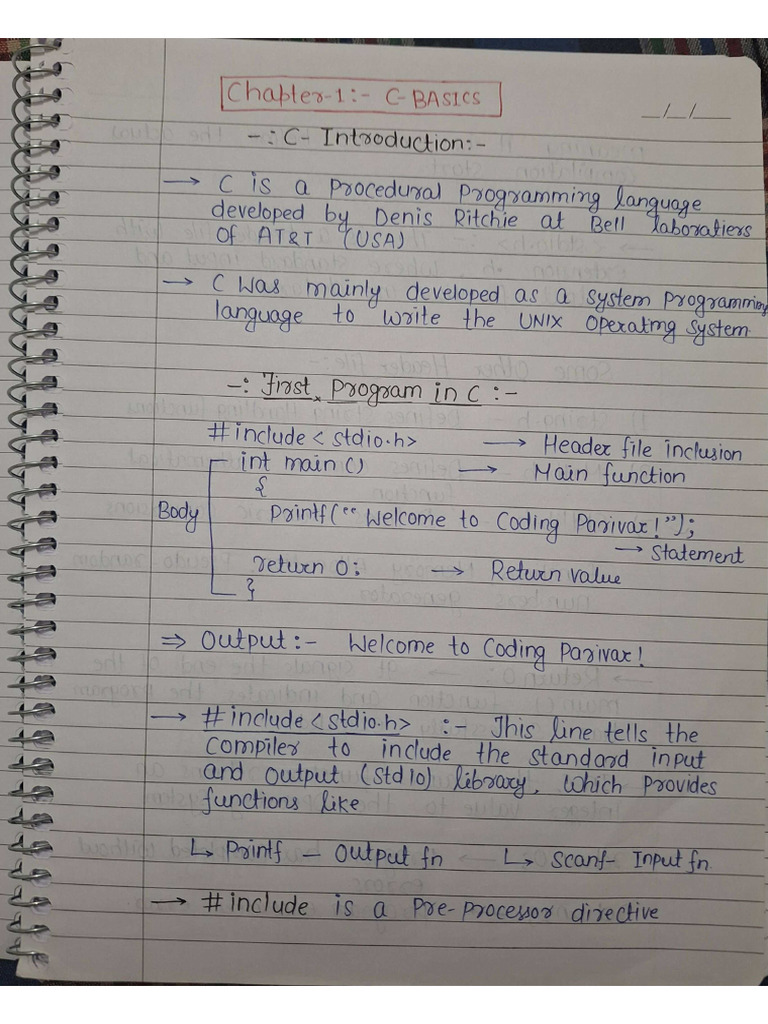 Chapter-1:- C-BASICS
__/__/____
-:C- Introduction:-
→ C is a Procedural Programming language
developed by Denis Ritchie at Bell laboratiers
Of AT&T (USA)
→ C was mainly developed as a system programming
language to write the UNIX Operating System
-: First Program in C :-
#include < stdio.h> → Header file inclusion
int main () → Main function
{
Body Printf(“Welcome to Coding Parivar!”);
→ Statement
return 0; → Return value
}
⇒ Output:- Welcome to Coding Parivar!
→ #include <stdio.h> :- This line tells the
Compiler to include the standard input
and output (Std IO) library, which provides
functions like
↳ Printf – Output fn ↳ Scanf- Input fn
→ #include is a Pre-Processor directive